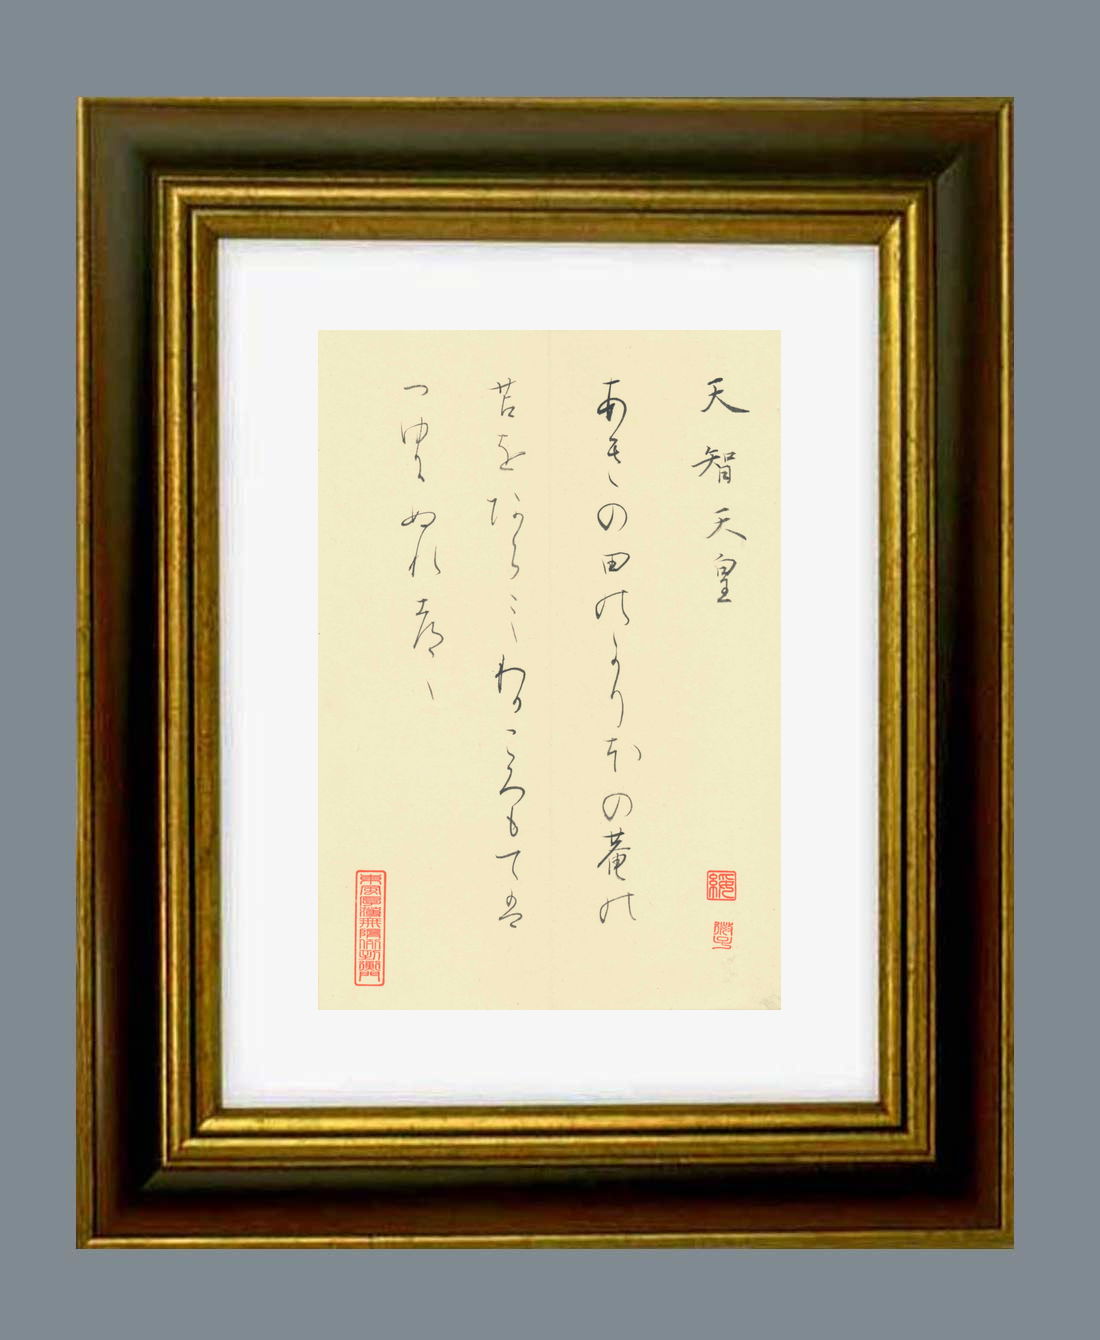 天智天皇
あきの田のかりほの菴の
苫をあらみわかころもては
つゆにぬれつゝ